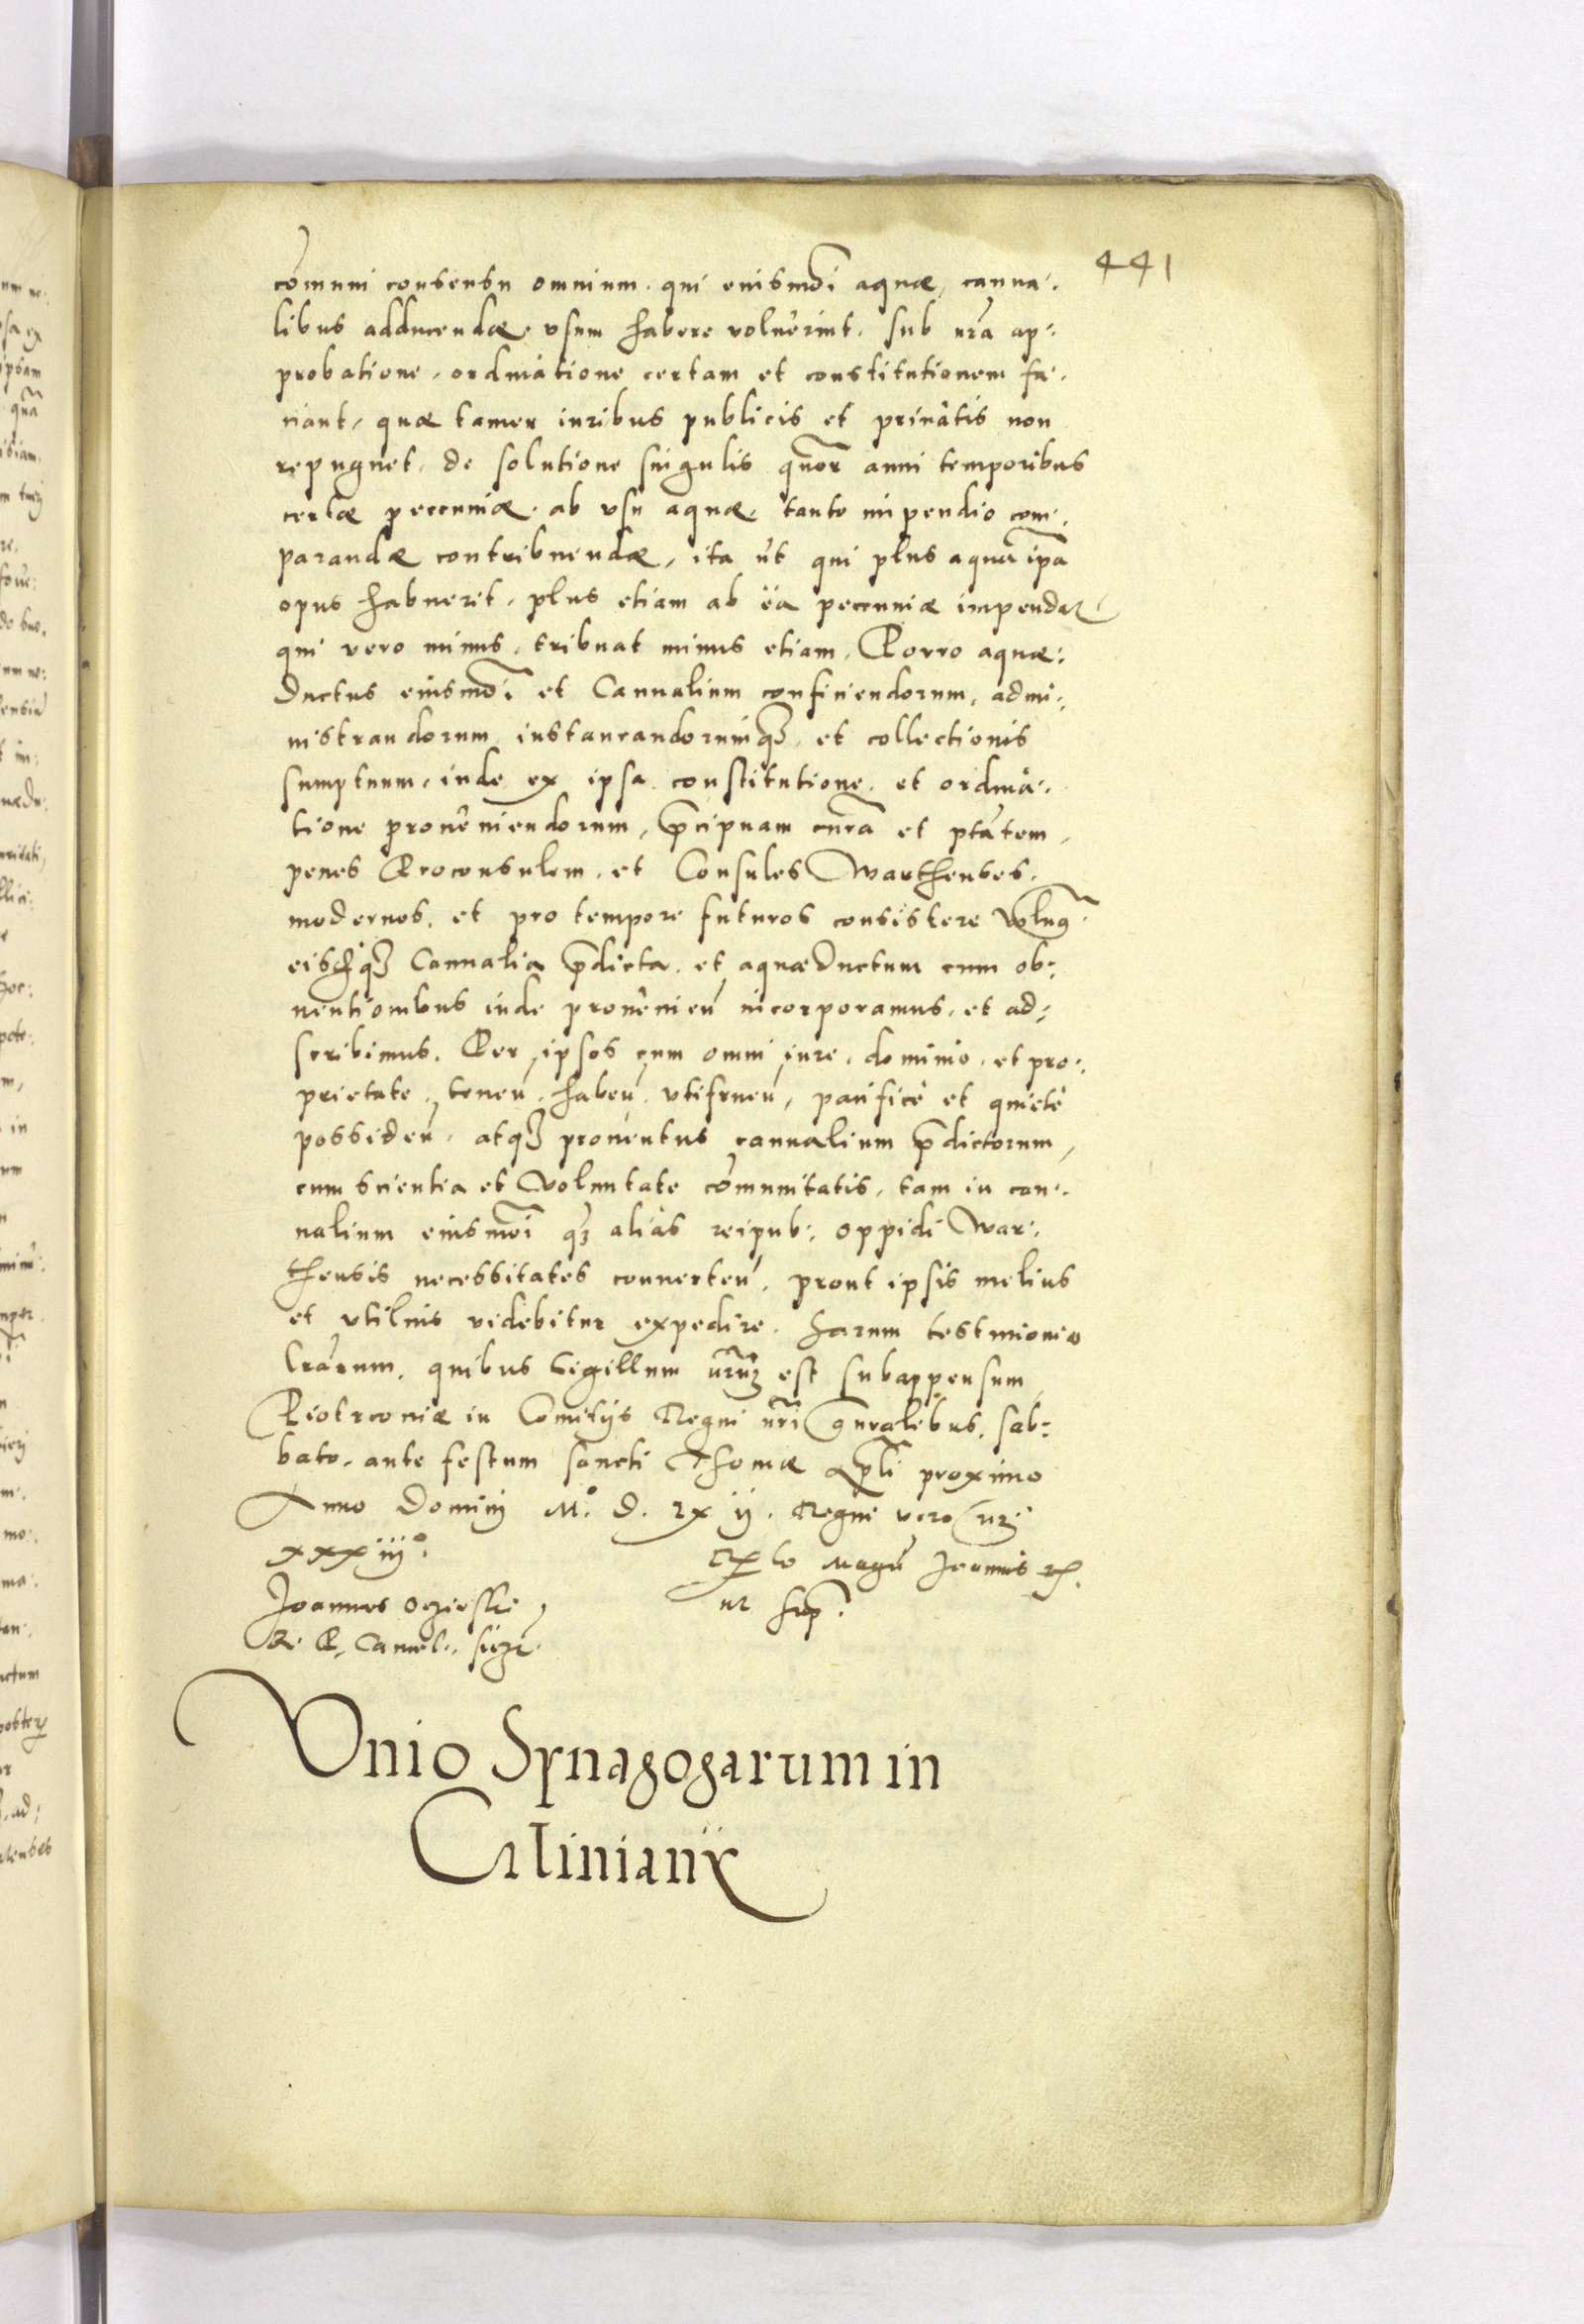 441
cõmuni consensu omnium. qui eiusmõi aquæ, canna:
libus adducendæ. vsum habere voluerint. sub nrã ap:
probatione, ordinatione certam et constitutionem fa:
ciant, quæ tamen iuribus publicis et priuatis non
repugnet. de solutione singulis quõr anni temporibus
certæ pecuniæ. ab vsu aquæ. tanto impendio com:
parandæ contribuendæ, ita ut qui plus aqua ipã
opus habuerit, plus etiam ab ea pecuniæ impendat
qui vero minus, tribuat minus etiam, Porro aquæ:
ductus eiusmõi et Cannalium conficiendorum, admi:
nistrandorum instaurandorumq3, et collectionis
sumptuum, inde ex ipsa constitutione, et ordina:
tione proueniendorum, p̃cipuam curã et ptãtem,
penes Proconsulem, et Consules Warthenses.
modernos, et pro tempore futuros consistere volum9
eisdemq3 Cannalia p̃dicta, et aquæductum cum ob:
uentionibus inde prouenieñ incorporamus, et ad:
scribimus. Per ipsos cum omni iure, dominio, et pro:
prietate, teneñ, habeñ, vtifrueñ, pacificè et quietè
possideñ, atq3 prouentus cannalium p̃dictorum,
cum scientia et voluntate cõmunitatis, tam in can:
nalium eiusmõi q3 aliàs reipub: oppidi War:
thensis necessitates conuerteñ, prout ipsis melius
et vtilius videbitur expedire. harum testimonio
lrãrum, quibus sigillum nrũ est subappensum
Piotrconiæ in Comitijs Regni nri gnralibus, sab:
bato, ante festum sancti Thomæ Apli proximo
Anno Domini M.º D. Lx ij. Regni vero nri
xxxiijº.
Rlo Magci Joannis
ut sup:
Joannes Ocziesski
R. P. Cancel:
Vnio Synagogarum in
Cilinianÿ